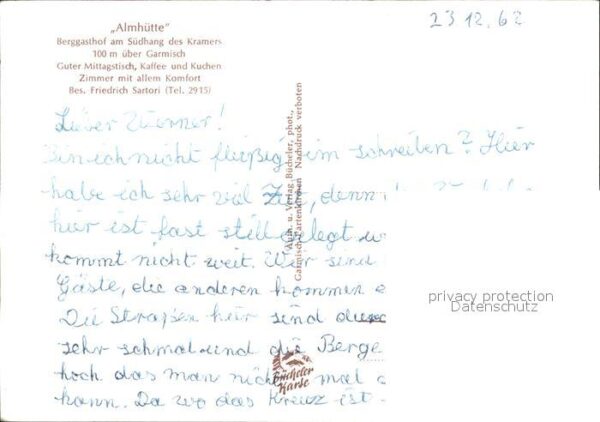 „Almhütte"
Berggasthof am Südhang des Kramers
100 m über Garmisch
Guter Mittagstisch, Kaffee und Kuchen
Zimmer mit allem Komfort
Bes. Friedrich Sartori (Tel. 2915)
23 12. 62
Aufn. u. Verlag Bücheler, phot.,
Garmisch-Partenkirchen Nachdruck verboten
Lieber Werner!
Bin ich nicht fleißig im schreiben? Hier
habe ich sehr viel Zeit, denn
hier ist fast still gelegt
kommt nicht weit. Wir sind
Gäste, die anderen kommen
Die Straßen hier sind
sehr schmal und die Berge
hoch das man nicht mal
kann. Da wo das Kreuz ist
Bücheler
Karte
privacy protection
Datenschutz